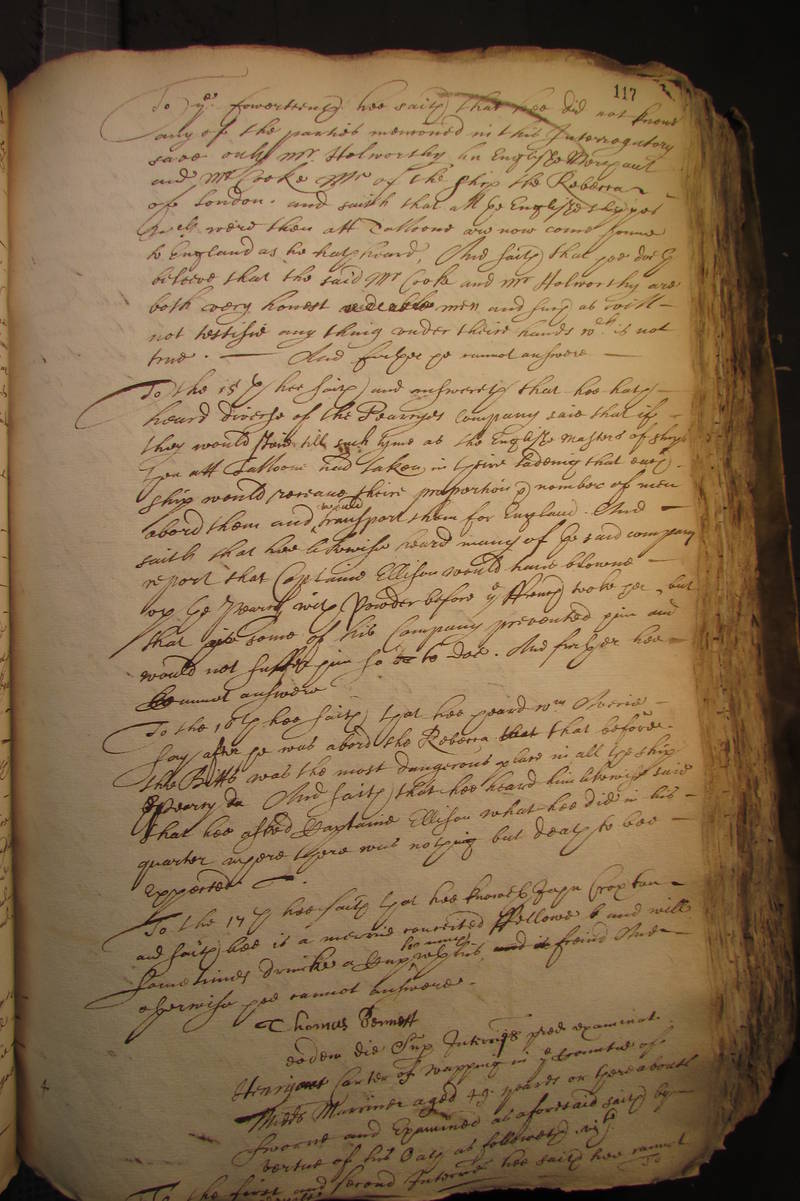 117
To ye. fowerteenth hee saith that hee did not know
any of the parties menconed in this Interrogatory
save only Mr. Holworthy an English Merchant
and Mr Cooke Mr of the ship the Rebecca
of London. and saith that all the English shipps
were then att Talloone are now come home
to England as he hath heard, And saith that hee doeth
beleeve that the said Mr Cooke and mr Holworthy are
both very honest men and such as will
not testifie any thing under their hands wch is not
true. And further he cannot answere
To the 15th hee saith and answereth that hee hath
heard diverse of the Pearles Company saie that if
they would staie till such tyme as the English Masters of shipps
then att Talloone had taken in their ladeing that each
ship would receave their proportion & nomber of men
abord them and would transport them for England. And
saith that hee likewise heard many of the said company
report that Captaine Ellison would have blowne
up the Pearle with Powder before ye ffrench tooke her, but
that some of his Company prevented him and
would not suffer him so to doe. And further hee
cannot answere
To the 16th hee saith that hee heard Wm Averie
say after he was abord the Rebecca that before
the Bitts was the most dangerous place in all the ship
And saith that hee heard him likewise saie
that hee asked Captaine Ellison what hee did in his
quarter where there was nothing but death to bee
expected.
To the 17th hee saith that hee knowes John Croxton
and saith hee is a merrie conceited ffellowe and will
sometimes drinke a Cupp with his freind And
otherwise hee cannot answere.
Thomas Bennett
eodem die Sup Interr pred examinat.
Henry Carter of Wapping in ye Countie of
Midds Marriner aged 49. yeares or thereabouts
sworne and Examined as aforesaid saith by
vertue of his Oath as followeth vizt
To the first and second Interries hee saith hee cannot